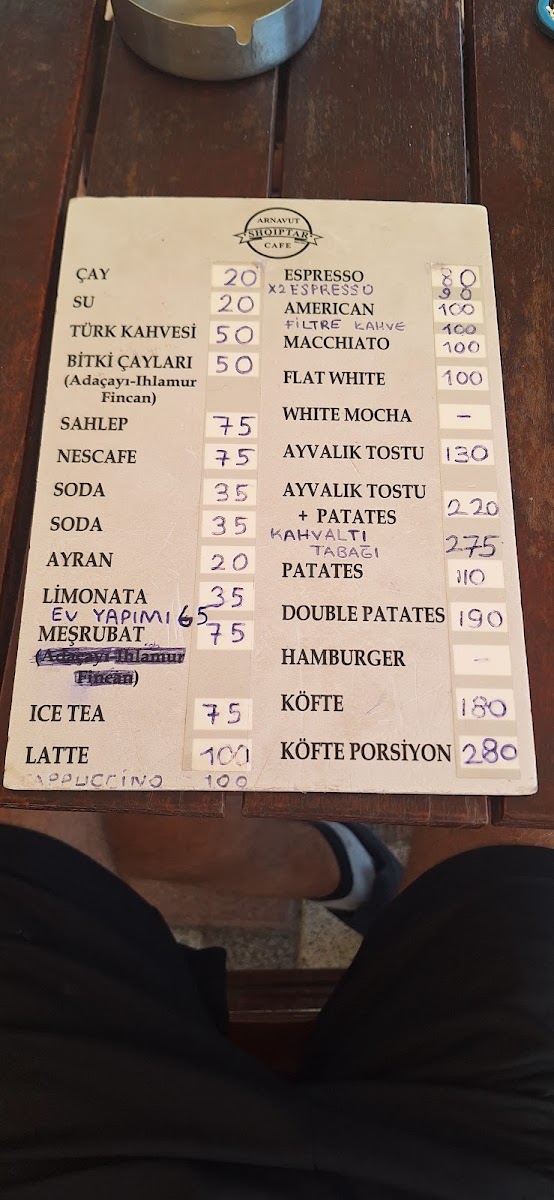 ARNAVUT
SHQIPTAR
CAFE
ÇAY 20
SU 20
TÜRK KAHVESİ 50
BİTKİ ÇAYLARI 50
(Adaçayı-Ihlamur
Fincan)
SAHLEP 75
NESCAFE 75
SODA 35
SODA 35
AYRAN 20
LİMONATA 35
EV YAPIMI 65
MEŞRUBAT 75
(Adaçayı-Ihlamur
Fincan)
ICE TEA 75
LATTE 100
CAPPUCCINO 100
ESPRESSO 80
X2 ESPRESSO 90
AMERICAN 100
FİLTRE KAHVE 100
MACCHIATO 100
FLAT WHITE 100
WHITE MOCHA -
AYVALIK TOSTU 130
AYVALIK TOSTU
+ PATATES 220
KAHVALTI
TABAĞI 275
PATATES 110
DOUBLE PATATES 190
HAMBURGER -
KÖFTE 180
KÖFTE PORSİYON 280